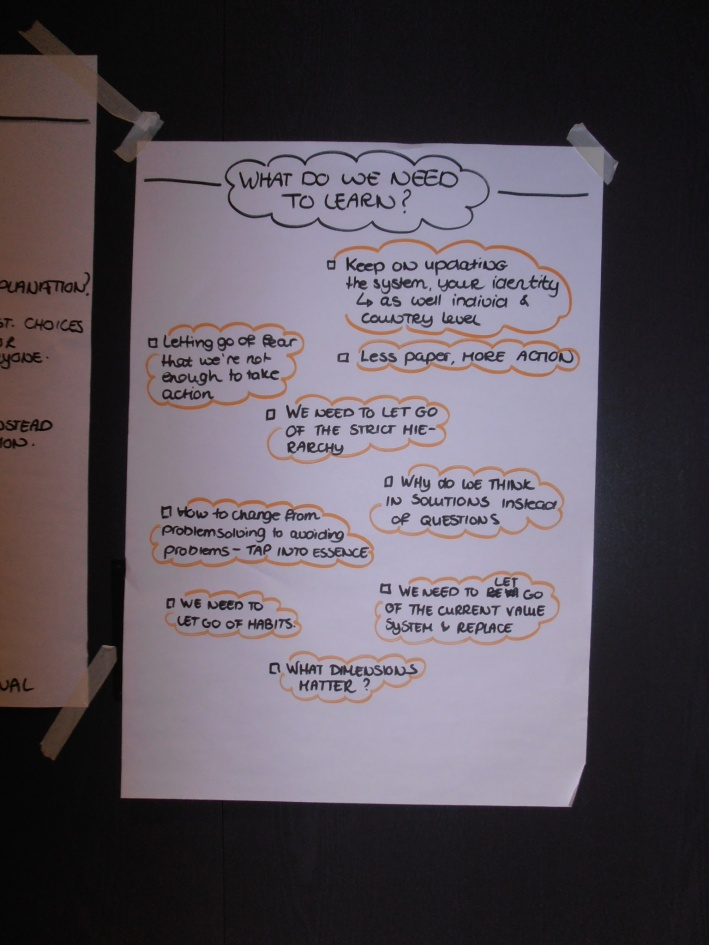 PLANATION?
ST. CHOICES
OR
YONE.
NSTEAD
ION.
UAL
WHAT DO WE NEED
TO LEARN?
Keep on updating
the system, your identity
↳ as well individ &
COUNTRY level
Letting go of fear
that we're not
enough to take
action
Less paper, MORE ACTION
WE NEED TO LET GO
OF THE STRICT HIE-
RARCHY
WHY do WE THINK
IN SOLUTIONS instead
OF QUESTIONS
How to change from
problemsolving to avoiding
problems - TAP INTO ESSENCE
LET
WE NEED TO GO
OF THE CURRENT VALUE
SYSTEM & REPLACE
WE NEED TO
LET GO OF HABITS.
WHAT DIMENSIONS
MATTER?